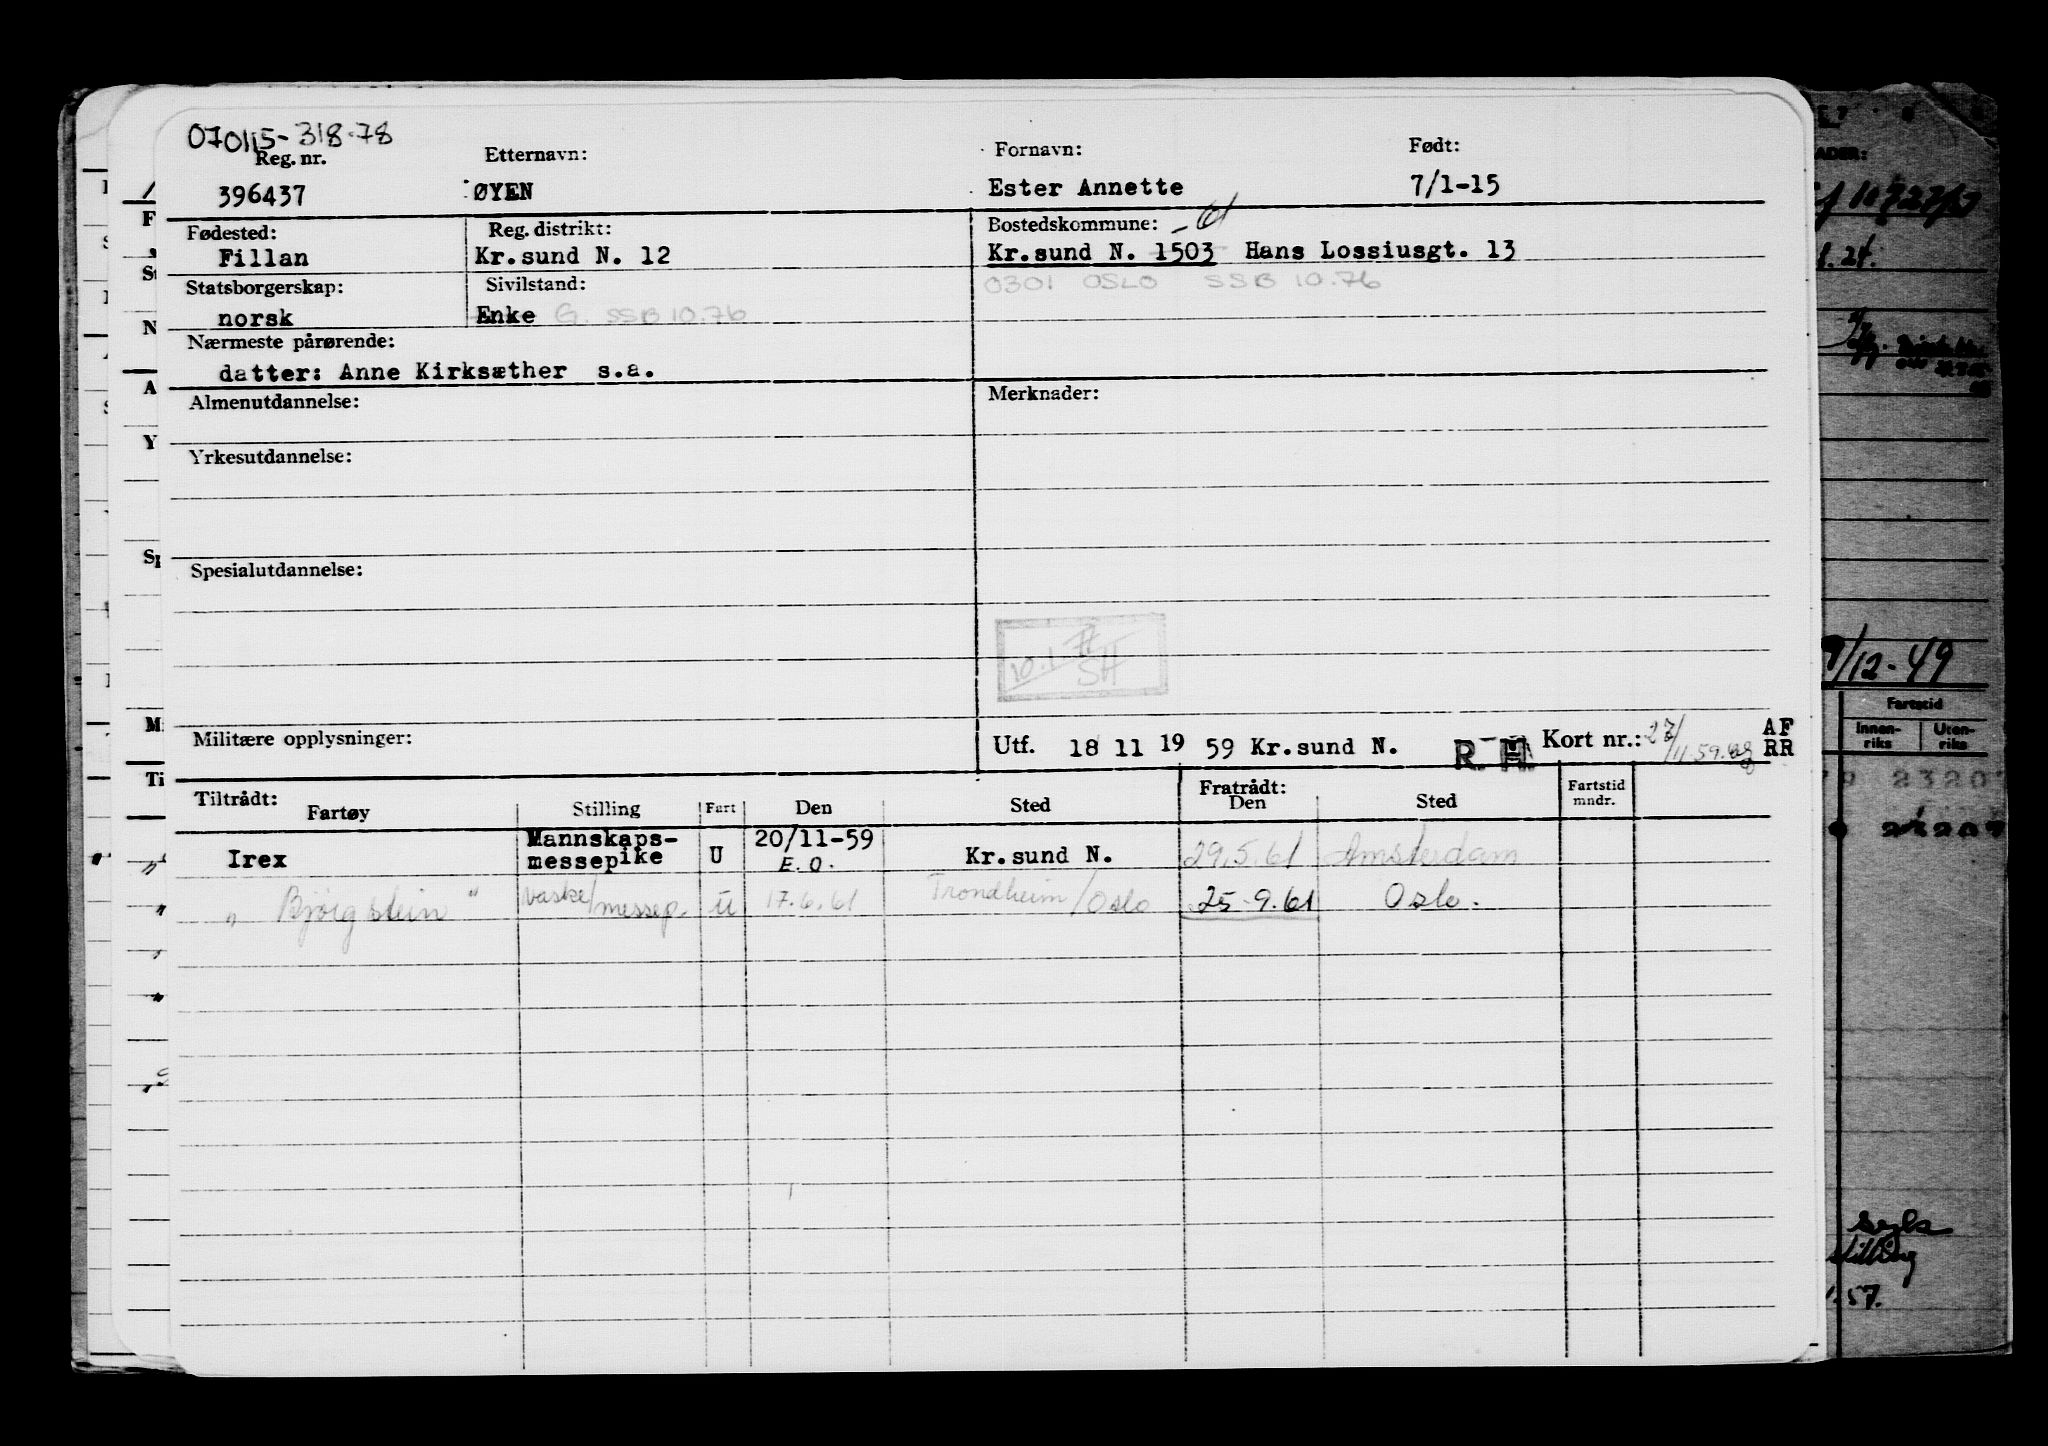 070115-318-78
Reg. nr. Etternavn: Fornavn: Født:
396437 ØYEN Ester Annette 7/1-15
Fødested: Reg. distrikt: Bostedskommune: -61
Fillan Kr.sund N. 12 Kr.sund N. 1503 Hans Lossiusgt. 13
Statsborgerskap: Sivilstand: 0301 OSLO SSB 10.76
norsk Enke G. SSB 10.76
Nærmeste pårørende:
datter: Anne Kirksæther s.a.
Almenutdannelse: Merknader:
Yrkesutdannelse:
Spesialutdannelse:
SH
Militære opplysninger: Utf. 18 11 19 59 Kr.sund N. R. H. Kort nr.: 27/11.59. AF
RR
Tiltrådt: Fratrådt: Fartstid
Fartøy Stilling Fart Den Sted Den Sted mndr.
Irex Mannskaps-messepike U 20/11-59 E.O. Kr.sund N. 29.5.61 Amsterdam
" Bjørgstein " vaske/messep. U 17.6.61 Trondheim/Oslo 25-9.61 Oslo.
9/12-49
Fartstid
Innen-riks Uten-riks
23207
23207